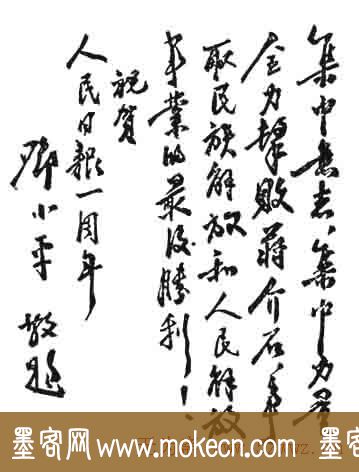 集中意志、集中力量
全力擊敗蔣介石、爭
取民族解放和人民解放
事業的最後勝利！
祝賀
人民日報一周年
鄧小平 敬題
墨客网 www.mokecn.com 墨客网